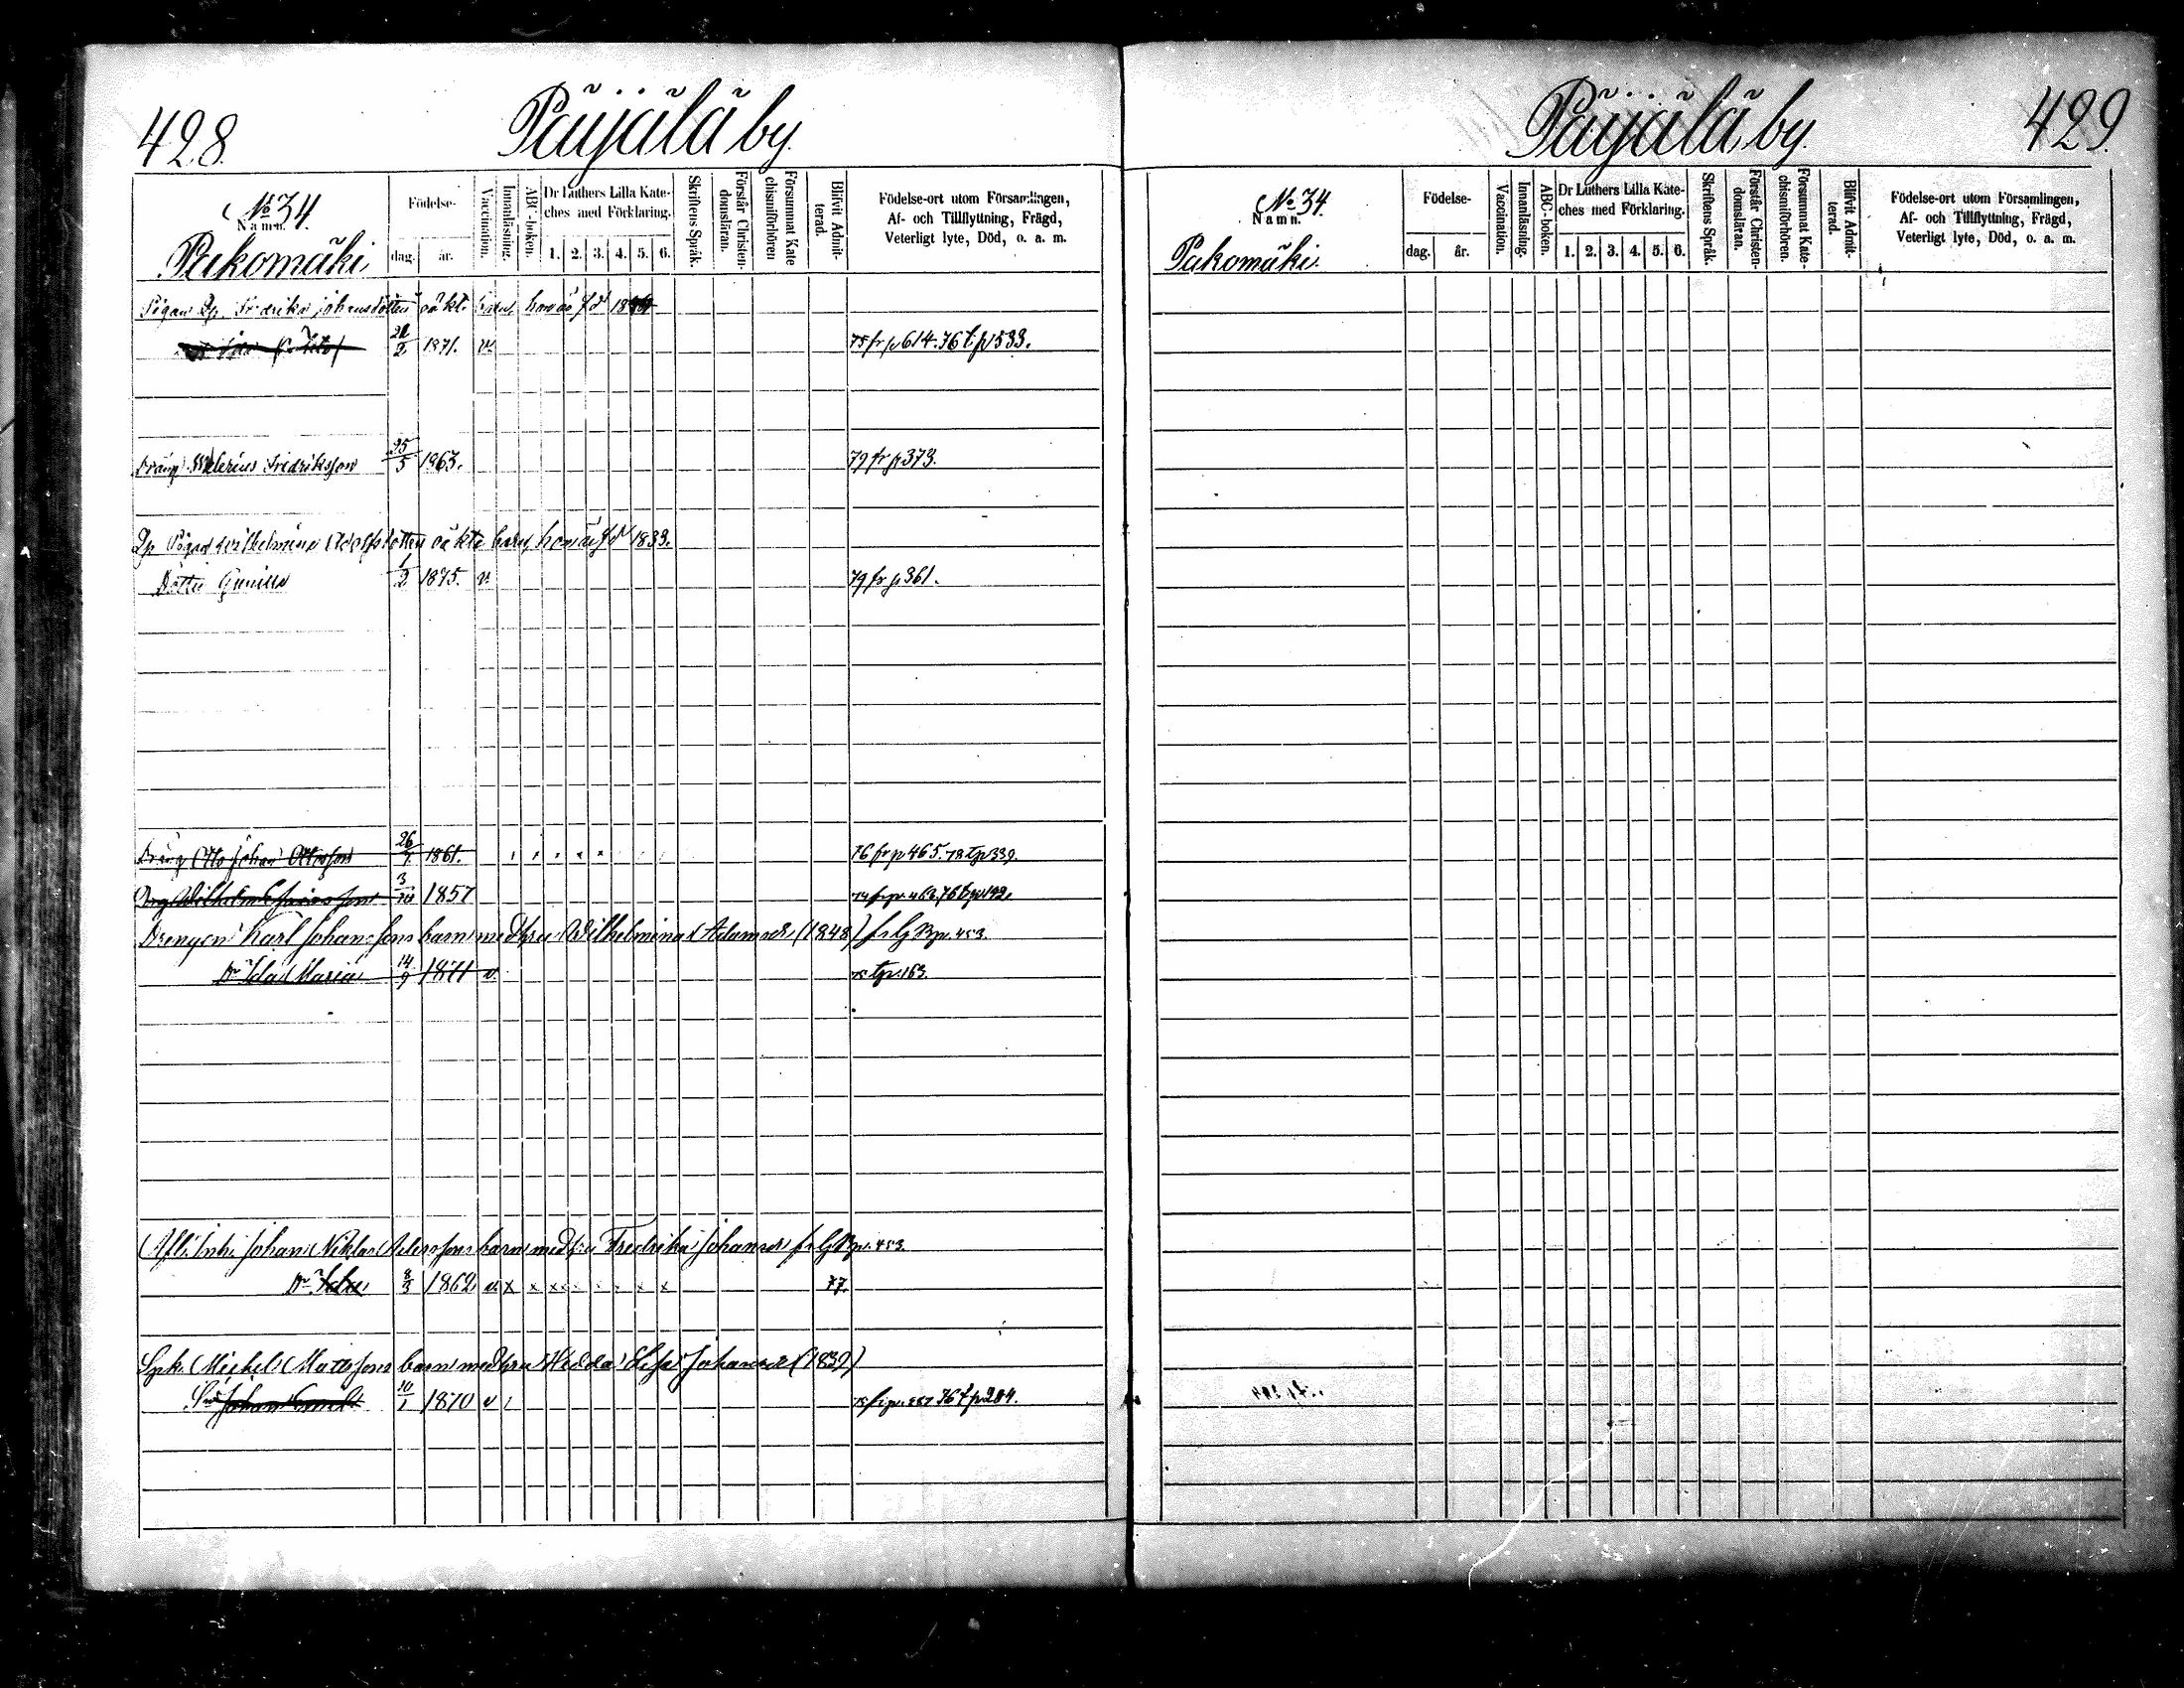 428.
Päijälä by.
No 34
Namn.
Pukomäki
Födelse-
dag.
år.
Vaccination.
Innanläsning.
ABC-boken.
Dr Luthers Lilla Kate-
ches med Förklaring.
1. 2. 3. 4. 5. 6.
Skriftens Språk.
Förstår Christen-
domsläran.
Försummat Kate
chismiförhören
Blifvit Admit-
terad.
Födelse-ort utom Församlingen,
Af- och Tillflyttning, Frägd,
Veterligt lyte, Död, o. a. m.
Pigan Fredrika Johansdotters oäkta 18
2 1871. v. 75 fr p 614. 76 t. p 533.
Dräng Fredriksson 25/5 1863. 79 fr p 373.
Pigan Wilhelmina oäkta barn, 1833.
Dotter Gunilla 1/2 1875. v. 79 fr p 361.
Dräng Otto Johan Ottosson 26/7 1861. 76 fr p 465. 78 tp 339.
Drg Wilhelm 3/10 1857
Drengen Karl Johanssons barn med hu Wilhelmina Adamsdr (1848) fr p. 453.
Dr Ida Maria 14/9 1871 v. 75 tp. 163.
Inh. Johan Niklas barn med hu Fredrika Johansdr p. 453.
Dr Ida 8/3 1862 v. x x x x x x x x 77.
Michel Mattssons barn med hu Hedda Lisa Johansdr (1832)
Sn Johan Emil 10/1 1870 v 76 t p 204.
429.
Päijälä by.
No 34.
Namn.
Pukomäki.
Födelse-
dag.
år.
Vaccination.
Innanläsning.
ABC-boken.
Dr Luthers Lilla Kate-
ches med Förklaring.
1. 2. 3. 4. 5. 6.
Skriftens Språk.
Förstår Christen-
domsläran.
Försummat Kate-
chismiförhören.
Blifvit Admit-
terad.
Födelse-ort utom Församlingen,
Af- och Tillflyttning, Frägd,
Veterligt lyte, Död, o. a. m.